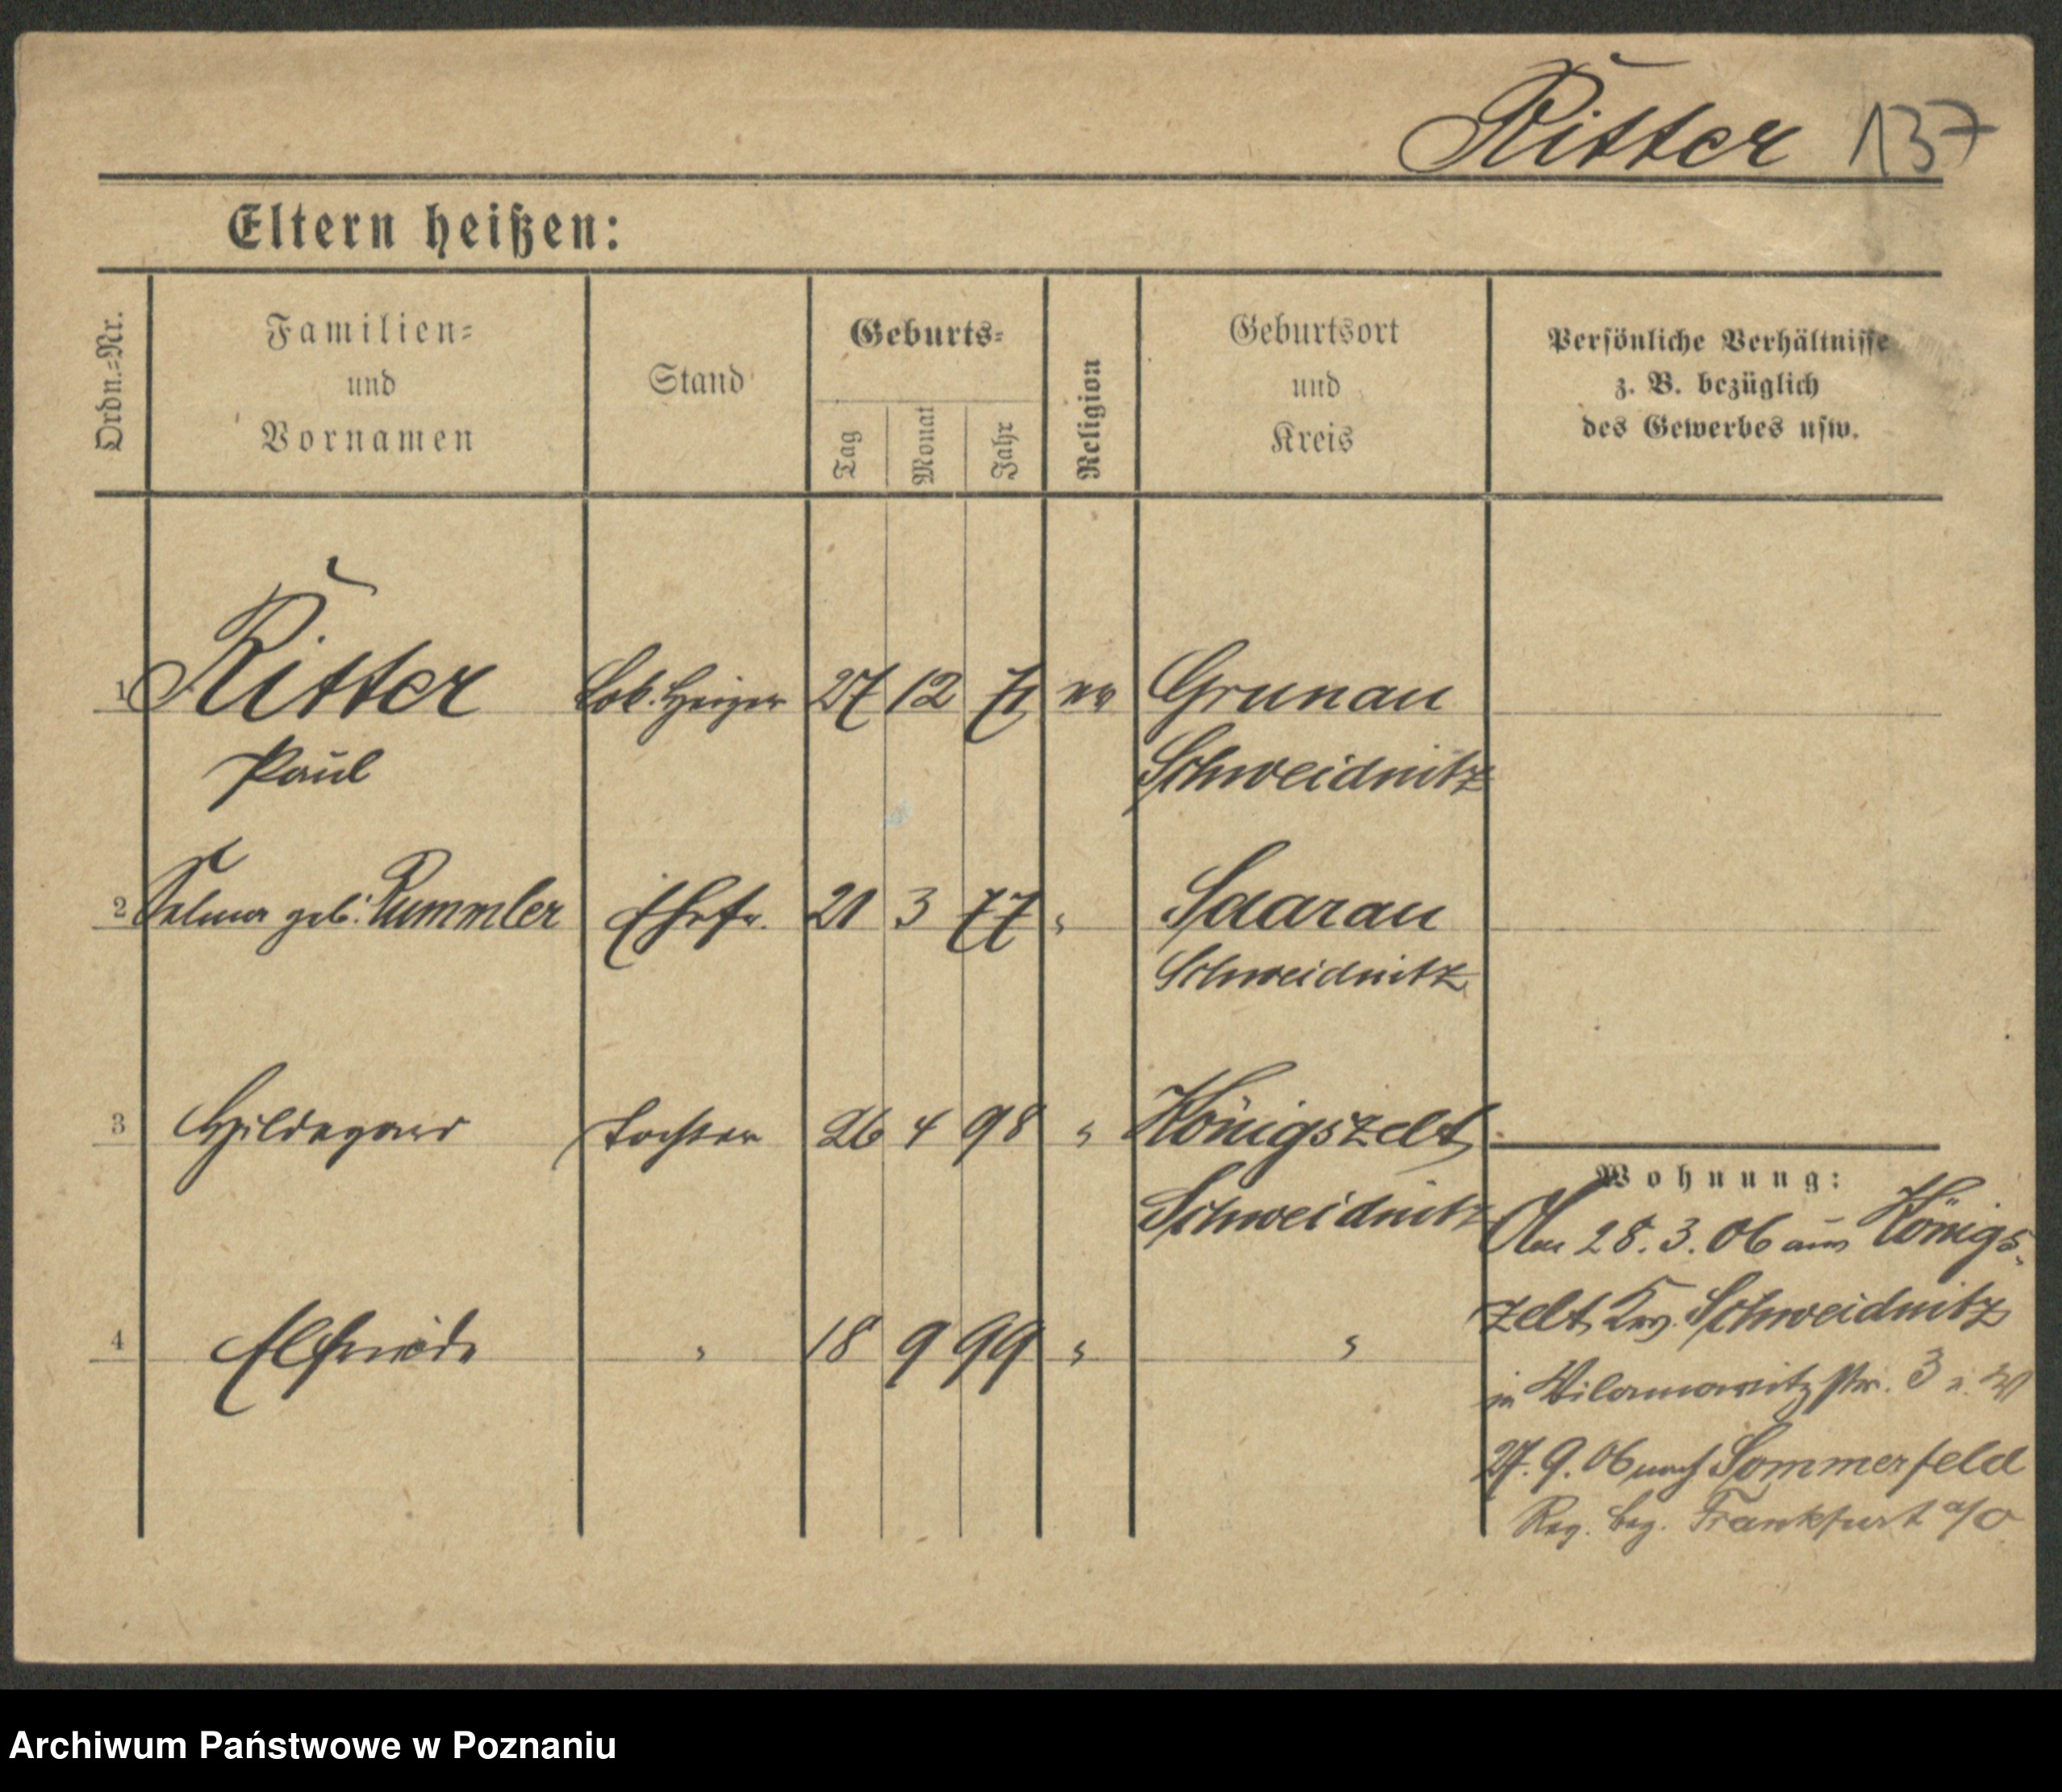 Ritter 137
Eltern heißen:
Ordn.=Nr.
Familien=
und
Vornamen
Stand
Geburts=
Tag
Monat
Jahr
Religion
Geburtsort
und
Kreis
Persönliche Verhältnisse
z. B. bezüglich
des Gewerbes usw.
1 Ritter Lok. Heizer 27 12 71 ev Grunau
Paul Schweidnitz
2 Selma geb. Rummler Ehefr. 21 3 77 " Saarau
Schweidnitz
3 Hildegard Tochter 26 4 98 " Königszelt
Schweidnitz
4 Elfriede " 18 9 99 " "
Wohnung:
Am 28.3.06 aus Königs-
zelt, Krs. Schweidnitz
in Wilamowitzstr. 3
27.9.06 nach Sommerfeld
Reg. Bez. Frankfurt a/O
Archiwum Państwowe w Poznaniu